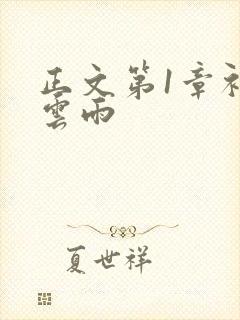 正文第1章初
雲雨
夏世祥